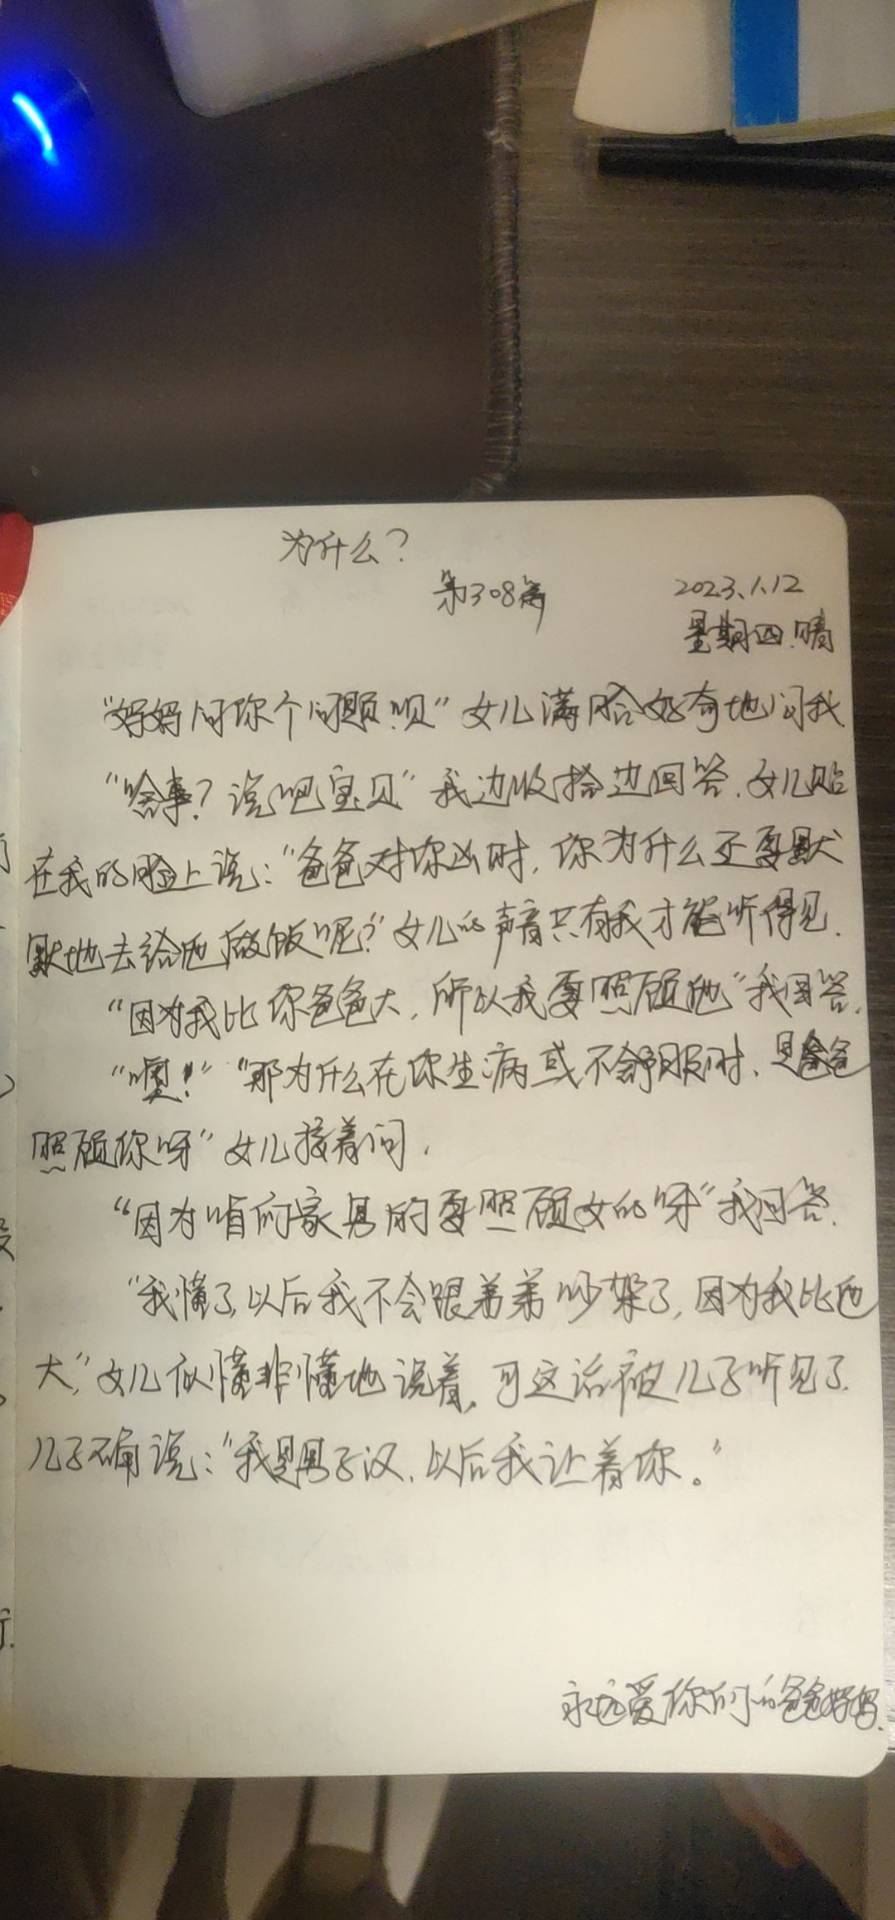 为什么？
第308篇
2023.1.12
星期四.晴
“妈妈问你个问题呗”女儿满脸好奇地问我
“啥事？说吧宝贝”我边收拾边回答.女儿贴
在我的脸上说：“爸爸对你凶时，你为什么还要默
默地去给他做饭呢？”女儿的声音只有我才能听得见.
“因为我比你爸爸大，所以我要照顾他”我回答.
“噢！”“那为什么在你生病或不舒服时、是爸爸
照顾你呀”女儿接着问.
“因为咱们家男的要照顾女的呀”我回答.
“我懂了,以后我不会跟弟弟吵架了,因为我比他
大,”女儿似懂非懂地说着,可这话被儿子听见了.
儿子说：“我是男子汉,以后我让着你。”
永远爱你们的爸爸妈妈.